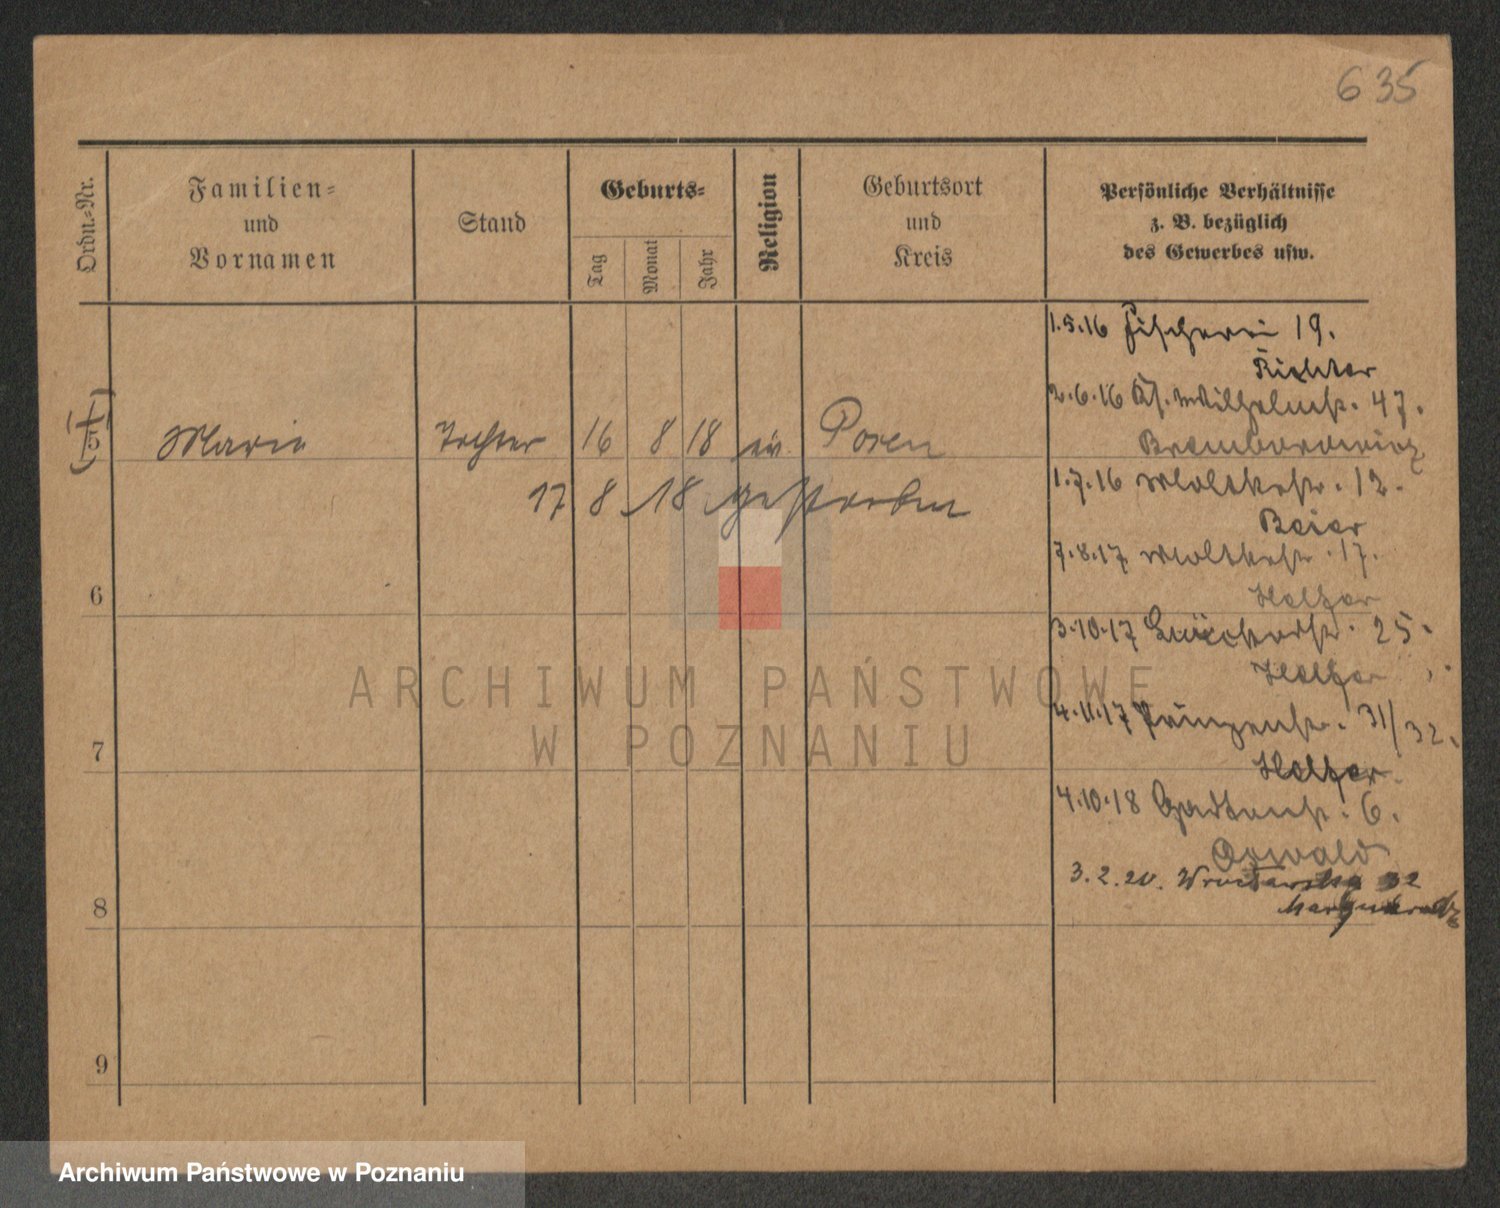 635
Ordn.=Nr.
Familien=
und
Vornamen
Stand
Geburts=
Tag
Monat
Jahr
Religion
Geburtsort
und
Kreis
Persönliche Verhältnisse
z. B. bezüglich
des Gewerbes usw.
1.5.16 Fischerei 19.
Richter
2.6.16 Kl. Wilhelmstr. 47.
5 Marie Tochter 16 8 18 ev. Posen
17 8 18 gestorben
1.7.16 Moltkestr. 12.
Beier
7.8.17 Moltkestr. 17.
Holzer
6
3.10.17 25.
Holzer
ARCHIWUM PAŃSTWOWE
W POZNANIU
4.11.17 Prinzenstr. 31/32.
7
Holzer
4.10.18 Gartenstr. 6.
Oswald
3.2.20. Wrocławska 32
8
9
Archiwum Państwowe w Poznaniu